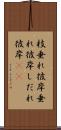 枝垂れ彼岸垂
れ彼岸しだれ
彼岸